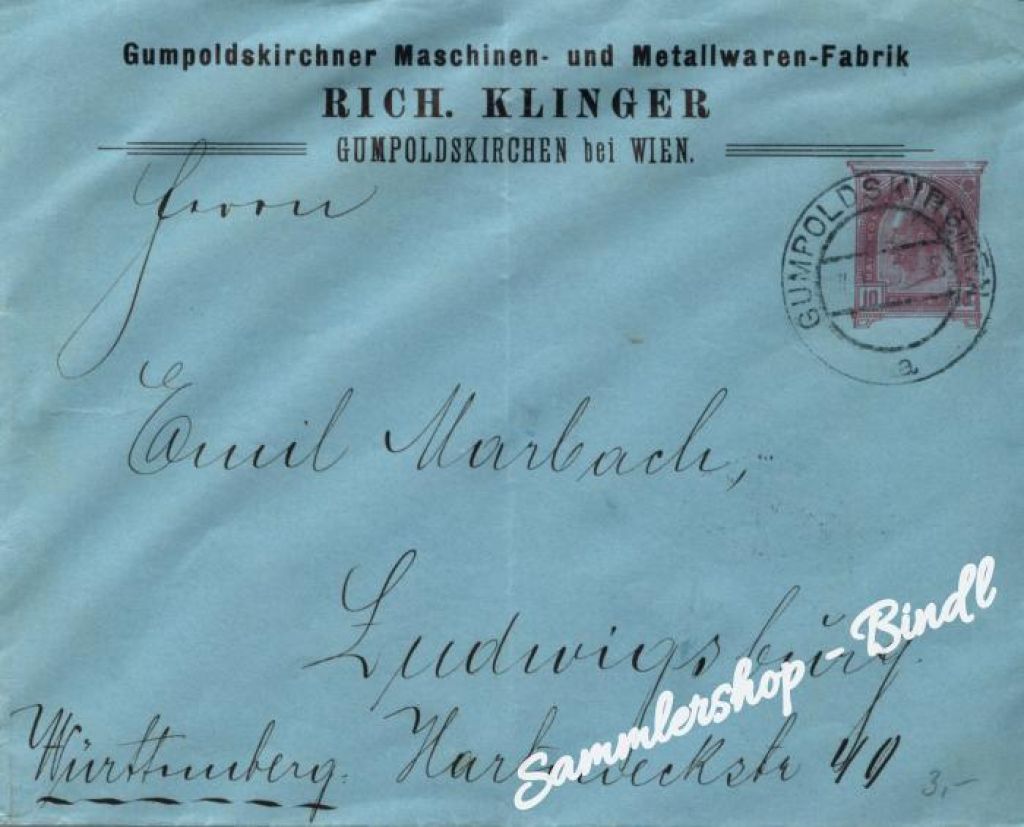 Gumpoldskirchner Maschinen- und Metallwaren-Fabrik
RICH. KLINGER
GUMPOLDSKIRCHEN bei WIEN.
Herrn
GUMPOLDSKIRCHEN
10
a
Emil Marbach,
Ludwigsburg.
Württemberg.
Sammlershop - Bindl
3,-